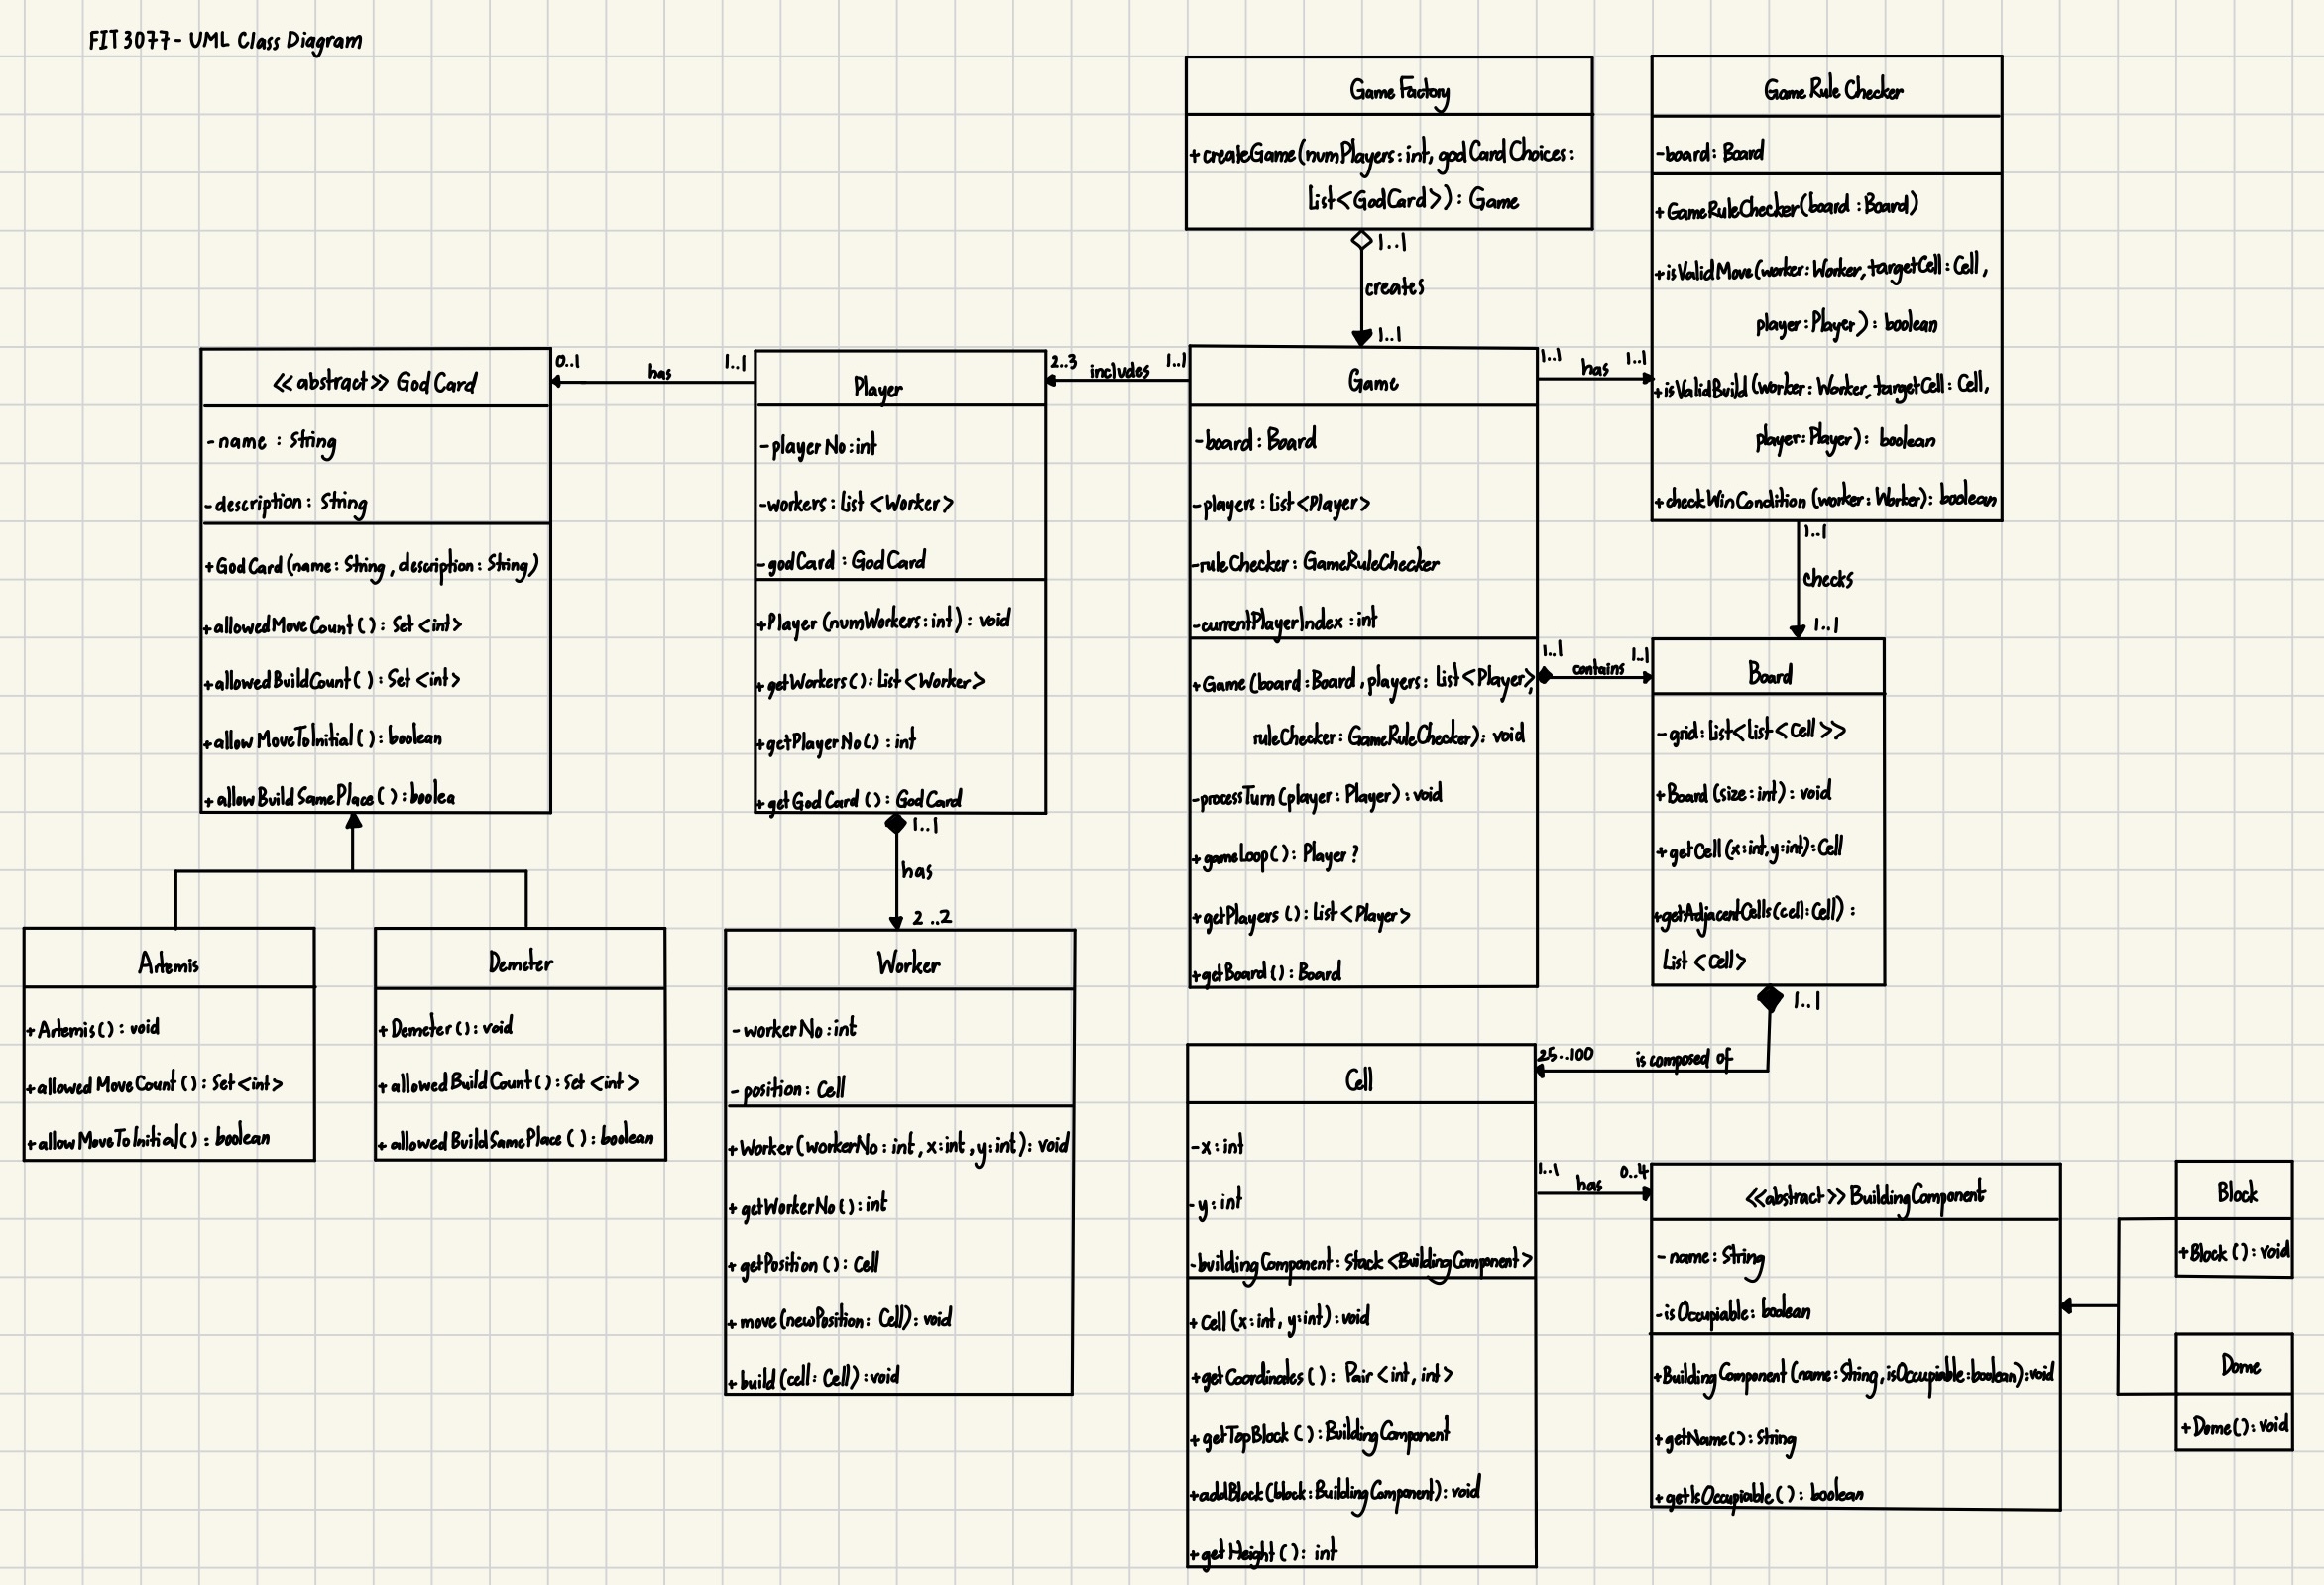 FIT3077 - UML Class Diagram
Game Factory
+ createGame(numPlayers: int, godCardChoices:
List<GodCard>): Game
1..1
creates
1..1
GameRuleChecker
-board: Board
+GameRuleChecker(board: Board)
+isValidMove(worker: Worker, targetCell: Cell,
player: Player): boolean
+isValidBuild(worker: Worker, targetCell: Cell,
player: Player): boolean
+checkWinCondition (worker: Worker): boolean
1..1
checks
1..1
<<abstract>> GodCard
-name : String
-description: String
+GodCard(name: String, description: String)
+allowedMoveCount(): Set<int>
+allowedBuildCount(): Set<int>
+allowMoveToInitial(): boolean
+allowBuildSamePlace(): boolea
0..1
has
1..1
Player
-playerNo: int
-workers: List<Worker>
-godCard : GodCard
+Player (numWorkers: int): void
+getWorkers(): List<Worker>
+getPlayerNo(): int
+getGodCard(): GodCard
2..3
includes
1..1
Game
-board: Board
-players: List<Player>
-ruleChecker: GameRuleChecker
-currentPlayerIndex : int
+Game(board: Board, players: List<Player>,
ruleChecker: GameRuleChecker): void
-processTurn(player: Player): void
+gameLoop(): Player?
+getPlayers(): List<Player>
+getBoard(): Board
1..1
has
1..1
1..1
contains
1..1
Board
-grid: List<List<Cell>>
+Board (size: int): void
+getCell(x: int, y: int): Cell
+getAdjacentCells(cell: Cell) :
List<Cell>
1..1
is composed of
25..100
1..1
has
2..2
Artemis
+Artemis(): void
+allowedMoveCount(): Set<int>
+allowMoveToInitial(): boolean
Demeter
+Demeter(): void
+allowedBuildCount(): Set<int>
+allowedBuildSamePlace(): boolean
Worker
-workerNo: int
-position: Cell
+Worker(workerNo: int, x: int, y: int): void
+getWorkerNo(): int
+getPosition(): Cell
+move(newPosition: Cell): void
+build(cell: Cell): void
Cell
-x: int
-y: int
-buildingComponent: Stack<BuildingComponent>
+Cell(x: int, y: int): void
+getCoordinates(): Pair<int, int>
+getTopBlock(): BuildingComponent
+addBlock(block: BuildingComponent): void
+getHeight(): int
1..1
has
0..4
<<abstract>> BuildingComponent
-name: String
-isOccupiable: boolean
+BuildingComponent (name: String, isOccupiable: boolean): void
+getName(): String
+getIsOccupiable(): boolean
Block
+Block(): void
Dome
+Dome(): void